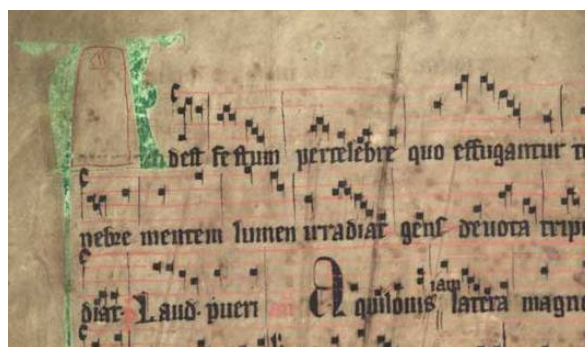 Adest festum percelebre quo effugantur te
nebre mentem lumen irradiat gens devota tripu
diat. Laud. pueri an Aquilonis iam latera magn